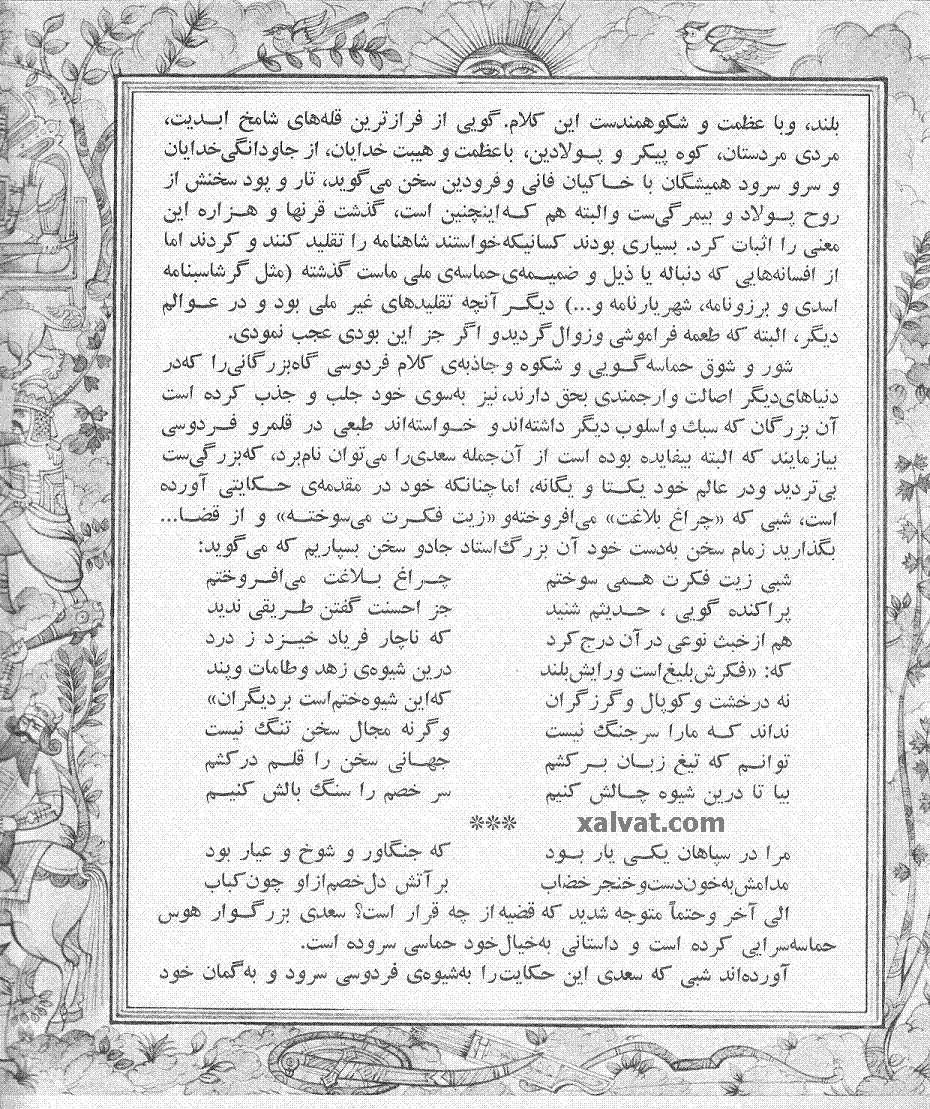 بلند، وبا عظمت و شکوهمندست این کلام. گویی از فرازترین قله‌های شامخ ابدیت،
مردی مردستان، کوه پیکر و پولادین، باعظمت و هیبت خدایان، از جاودانگی‌خدایان
و سرو سرود همیشگان با خاکیان فانی وفرودین سخن می‌گوید، تار و پود سخنش از
روح پولاد و بیمرگی‌ست والبته هم که‌اینچنین است، گذشت قرنها و هزاره این
معنی را اثبات کرد. بسیاری بودند کسانیکه‌خواستند شاهنامه را تقلید کنند و کردند اما
از افسانه‌هایی که دنباله یا ذیل و ضمیمه‌ی‌حماسه‌ی ملی ماست گذشته (مثل گرشاسبنامه
اسدی و برزونامه، شهریارنامه و...) دیگر آنچه تقلیدهای غیر ملی بود و در عوالم
دیگر، البته که طعمه فراموشی وزوال‌گردیدو اگر جز این بودی عجب نمودی.
شور و شوق حماسه‌گویی و شکوه وجاذبه‌ی کلام فردوسی گاه‌بزرگانی‌را که‌در
دنیاهای‌دیگر اصالت وارجمندی بحق دارند، نیز به‌سوی خود جلب و جذب کرده است
آن بزرگان که سبك واسلوب دیگر داشته‌اندو خواسته‌اند طبعی در قلمرو فردوسی
بیازمایند که البته بیفایده بوده است از آن‌جمله سعدی‌را می‌توان نام‌برد، که‌بزرگی‌ست
بی‌تردید ودر عالم خود یکتا و یگانه، اماچنانکه خود در مقدمه‌ی حکایتی آورده
است، شبی که «چراغ بلاغت» می‌افروخته‌و «زیت فکرت می‌سوخته» و از قضا...
بگذارید زمام سخن به‌دست خود آن بزرگ‌استاد جادو سخن بسپاریم که می‌گوید:
شبی زیت فکرت همی سوختم چراغ بلاغت می‌افروختم
پراکنده گویی ، حدیثم شنید جز احسنت گفتن طریقی ندید
هم ازخبث نوعی در آن درج‌کرد که ناچار فریاد خیزد ز درد
که: «فکرش‌بلیغ‌است ورایش‌بلند درین شیوه‌ی زهد وطامات وپند
نه درخشت وکوپال وگرزگران که‌این شیوه‌ختم‌است بردیگران»
نداند که مارا سرجنگ نیست وگرنه مجال سخن تنگ نیست
توانم که تیغ زبان برکشم جهانی سخن را قلم درکشم
بیا تا درین شیوه چالش کنیم سر خصم را سنگ بالش کنیم
*** xalvat.com
مرا در سپاهان یکی یار بود که جنگاور و شوخ و عیار بود
مدامش‌به‌خون‌دست‌وخنجرخضاب برآتش دل‌خصم‌ازاو چون‌کباب
الی آخر وحتماً متوجه شدید که قضیه‌از چه قرار است؟ سعدی بزرگوار هوس
حماسه‌سرایی کرده است و داستانی به‌خیال‌خود حماسی سروده است.
آورده‌اند شبی که سعدی این حکایت‌را به‌شیوه‌ی فردوسی سرود و به‌گمان خود